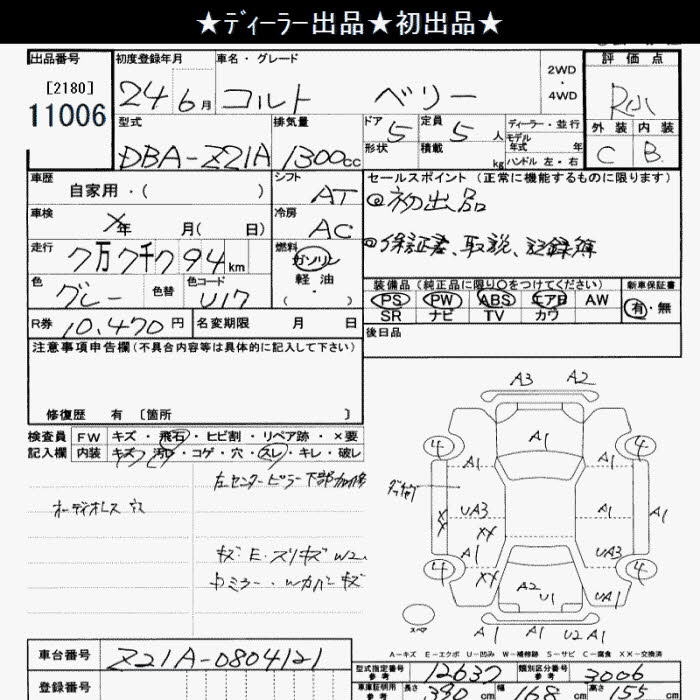 ★ディーラー出品★初出品★
出品番号
[2180]
11006
初度登録年月
24 6月
車名・グレード
コルト ベリー
2WD
・
4WD
評価点
外装 内装
C B
型式
DBA-Z21A
排気量
1300cc
ドア 5
形状
定員 5 人
積載 kg
ディーラー・並行
モデル年式 年
ハンドル 左・右
車歴
自家用・( )
シフト
AT
セールスポイント (正常に機能するものに限ります)
初出品
保証書、取説、記録簿
車検
年 月( 日)
冷房
AC
走行
7万7千794km
燃料
ガソリン
軽油
・
( )
色
グレー
色替
色コード
U17
装備品 (純正品に限り○をつけてください)
PS PW ABS エアB AW
SR ナビ TV カワ
新車保証書
有・無
R券 10,470円
名変期限 月 日
後日品
注意事項申告欄 (不具合内容等は具体的に記入して下さい)
修復歴 有 [箇所 ]
検査員
記入欄
FW キズ・飛石・ヒビ割・リペア跡・×要
内装 キズ・汚れ・コゲ・穴・スレ・キレ・破レ
左センターピラー下部加修
オーディオレス
キズ・E・スリキズ
A3 A2
A1
4 4
A1 A1
UA3 A1 A1
XX
A1 UA3
4 XX 4
A2 U1 UA1
スペア
A1 A1 U2 A1
A-キズ E-エクボ U-凹み W-補修跡 S-サビ C-腐食 XX-交換済
車台番号
Z21A-0804121
登録番号
型式指定番号 参考
12637
類別区分番号 参考
3006
車庫証明用 参考
長さ 390 cm
幅 168 cm
高さ 155 cm